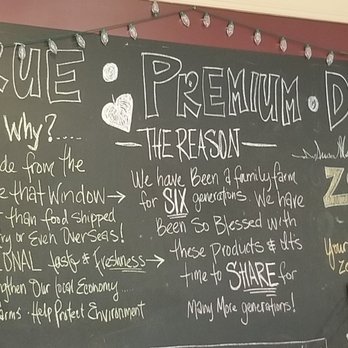 RUE · PREMIUM · D
Why?.....
de from the
e that Window →
than food shipped
ry or Even Overseas!
IONAL tasty & freshness →
gthen Our local Economy....
arms · Help Protect Environment
— THE REASON —
We have Been a family farm
for SIX generations. We have
Been So Blessed with
these Products & it's
time to SHARE for
Many More generations!
Z
Your